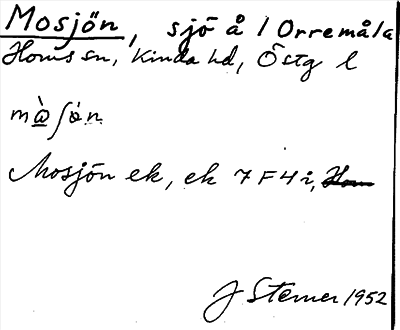 Mosjön, sjö å 1 Orremåla
Horns sn, Kinda hd, Östg l
mὼʃȯn
Mosjön ek, ek 7F4i,
J Sterner 1952